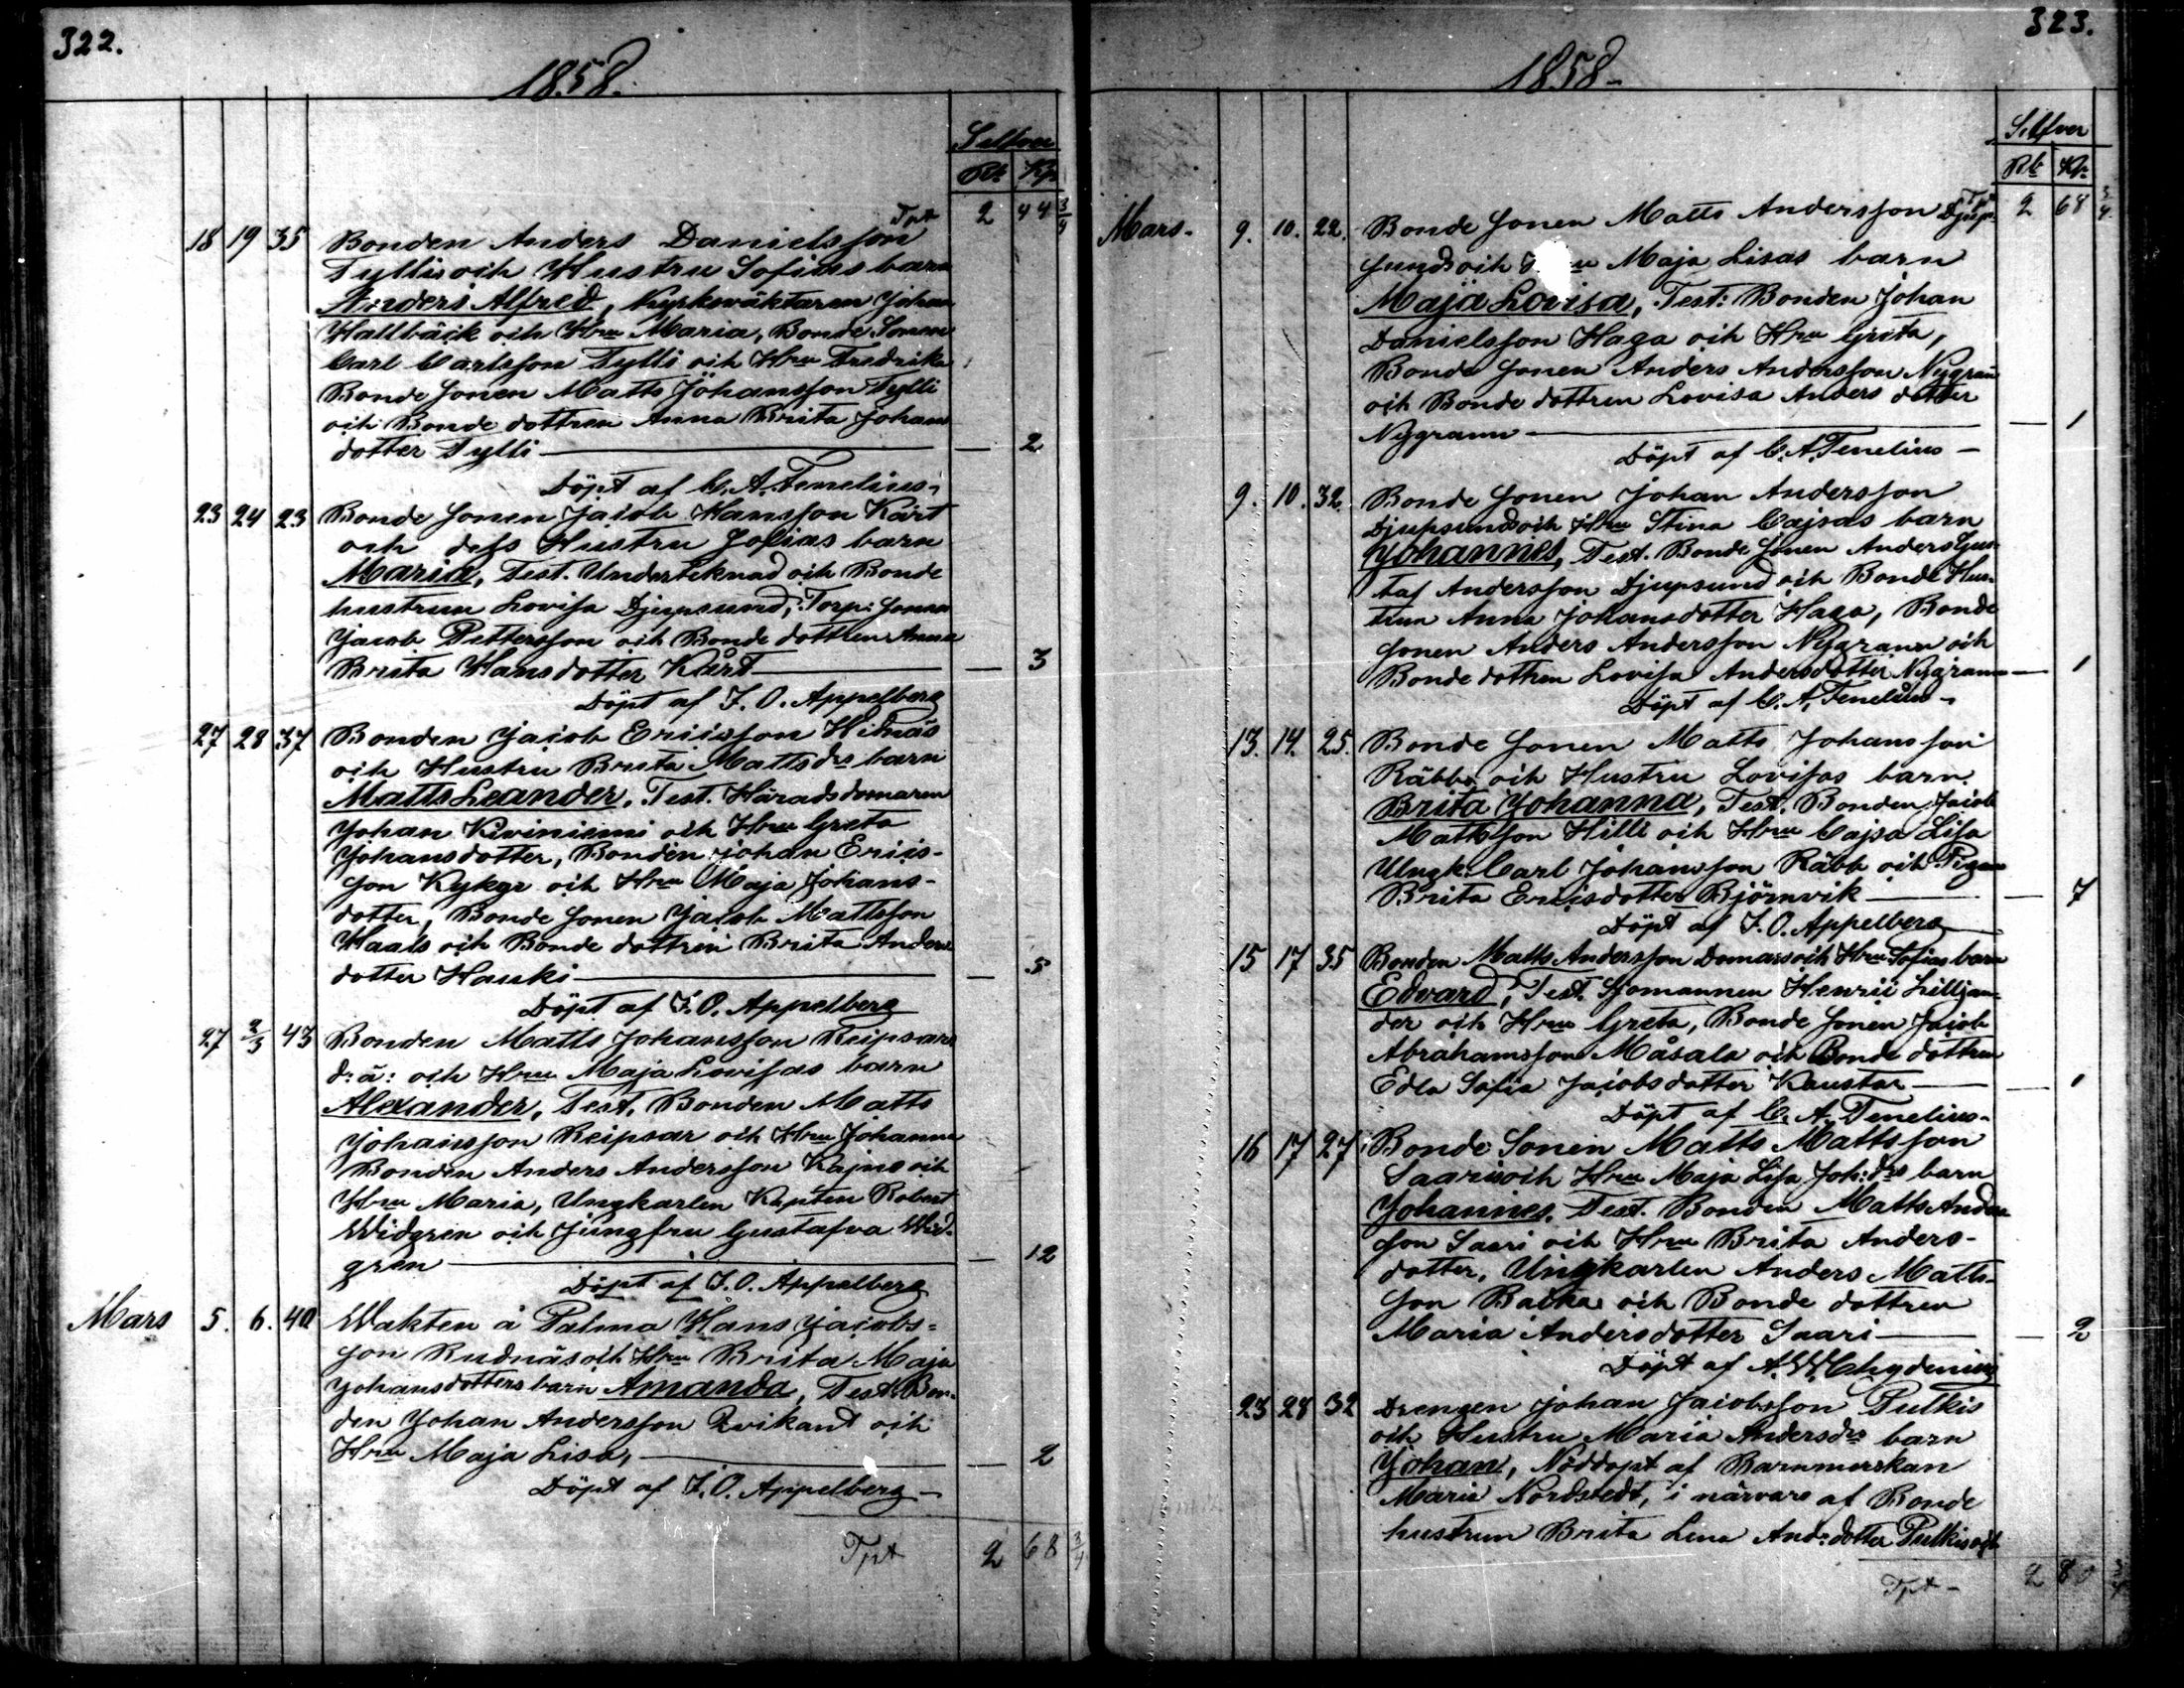 322.
1858.
Silfver
Rb Kp
Tpt 2 44 3/4
18 19 35 Bonden Anders Danielsson
Tyllis och Hustru Sofias barn
Anders Alfred, Kyrkowäktaren Johan
Hallbäck och Hru Maria, Bonde Sonen
Carl Carlsson Tylli och Hru Fredrika
Bonde Sonen Matts Johansson Tylli
och Bonde dottren Anna Brita Johans
dotter Tylli — 2
Döpt af C. A. Tenelius
23 24 23 Bonde Sonen Jacob Hansson Kärt
och dess Hustru Sofias barn
Maria, Test. Underteknad och Bonde
hustrun Lovisa Djupsund, Torp: Sonen
Jacob Pettersson och Bonde dottren Anna
Brita Hansdotter Kärt — 3
Döpt af J. O. Appelberg
27 28 37 Bonden Jacob Ericsson Hidnäs
och Hustru Brita Matts drs barn
Matts Leander, Test. Häradsdomaren
Johan Kiviniemi och Hru Greta
Johansdotter, Bonden Johan Erics-
son Kykyr och Hru Maja Johans-
dotter, Bonde Sonen Jacob Mattsson
Haals och Bonde dottren Brita Anders
dotter Hauki — 5
Döpt af J. O. Appelberg
27 2/3 43 Bonden Matts Johansson Reipsars
d: ä: och Hru Maja Lovisas barn
Alexander, Test. Bonden Matts
Johansson Reipsar och Hru Johanna
Bonden Anders Andersson Kajne och
Hru Maria, Ungkarlen Kapten Robert
Widgren och Jungfru Gustafva Wid-
gren — 12
Döpt af J. O. Appelberg
Mars 5. 6. 40 Wakten å Palma Hans Jacobs-
son Rudnäs och Hru Brita Maja
Johansdotters barn Amanda, Test. Bon-
den Johan Andersson Qvikant och
Hru Maja Lisa, — 2
Döpt af J. O. Appelberg
Tpt 2 68 3/4
323.
1858
Silfver
Rb Kp
Tpt 2 68 3/4
Mars 9. 10. 22. Bonde Sonen Matts Andersson Djup-
sunds och Hru Maja Lisas barn
Maja Lovisa, Test: Bonden Johan
Danielsson Haga och Hru Grita,
Bonde Sonen Anders Andersson Nygrann
och Bonde dottren Lovisa Anders dotter
Nygrann — 1
Döpt af C. A. Tenelius
9. 10. 32. Bonde Sonen Johan Andersson
Djupsunds och Hru Stina Cajsas barn
Johannes, Test. Bonde Sonen Anders Gus-
taf Andersson Djupsund och Bonde Hus-
trun Anna Johansdotter Haga, Bonde
Sonen Anders Andersson Nygrann och
Bonde dottren Lovisa Andersdotter Nygrann — 1
Döpt af C. A. Tenelius
13. 14. 25. Bonde Sonen Matts Johansson
Räbbs och Hustru Lovisas barn
Brita Johanna, Test. Bonden Jacob
Mattsson Hilli och Hru Cajsa Lisa
Ungk. Carl Johansson Räbb och Pigan
Brita Ericsdotter Björnvik — 7
Döpt af J. O. Appelberg
15 17 35 Bonden Matts Andersson Domars och Hru Sofias barn
Edvard, Test. Sjömannen Henric Liljan-
der och Hru Greta, Bonde Sonen Jacob
Abrahamsson Måsala och Bonde dottren
Edla Sofia Jacobsdotter Kaustar — 1
Döpt af C. A. Tenelius
16 17 27 Bonde Sonen Matts Mattsson
Saaris och Hru Maja Lisa Joh: drs barn
Johannes. Test. Bonden Matts Anders
son Saari och Hru Brita Anders-
dotter, Ungkarlen Anders Matts-
son Backa och Bonde dottren
Maria Andersdotter Saari — 2
Döpt af A. W. Chydenius
23 28 32 Drengen Johan Jacobsson Pulkis
och Hustru Maria Andersdrs barn
Johan, Nöddöpt af Barnmorskan
Maria Nordstedt, i närvaro af Bonde
hustrun Brita Lena And: dotter Pulkis och
Tpt 2 80 3/4